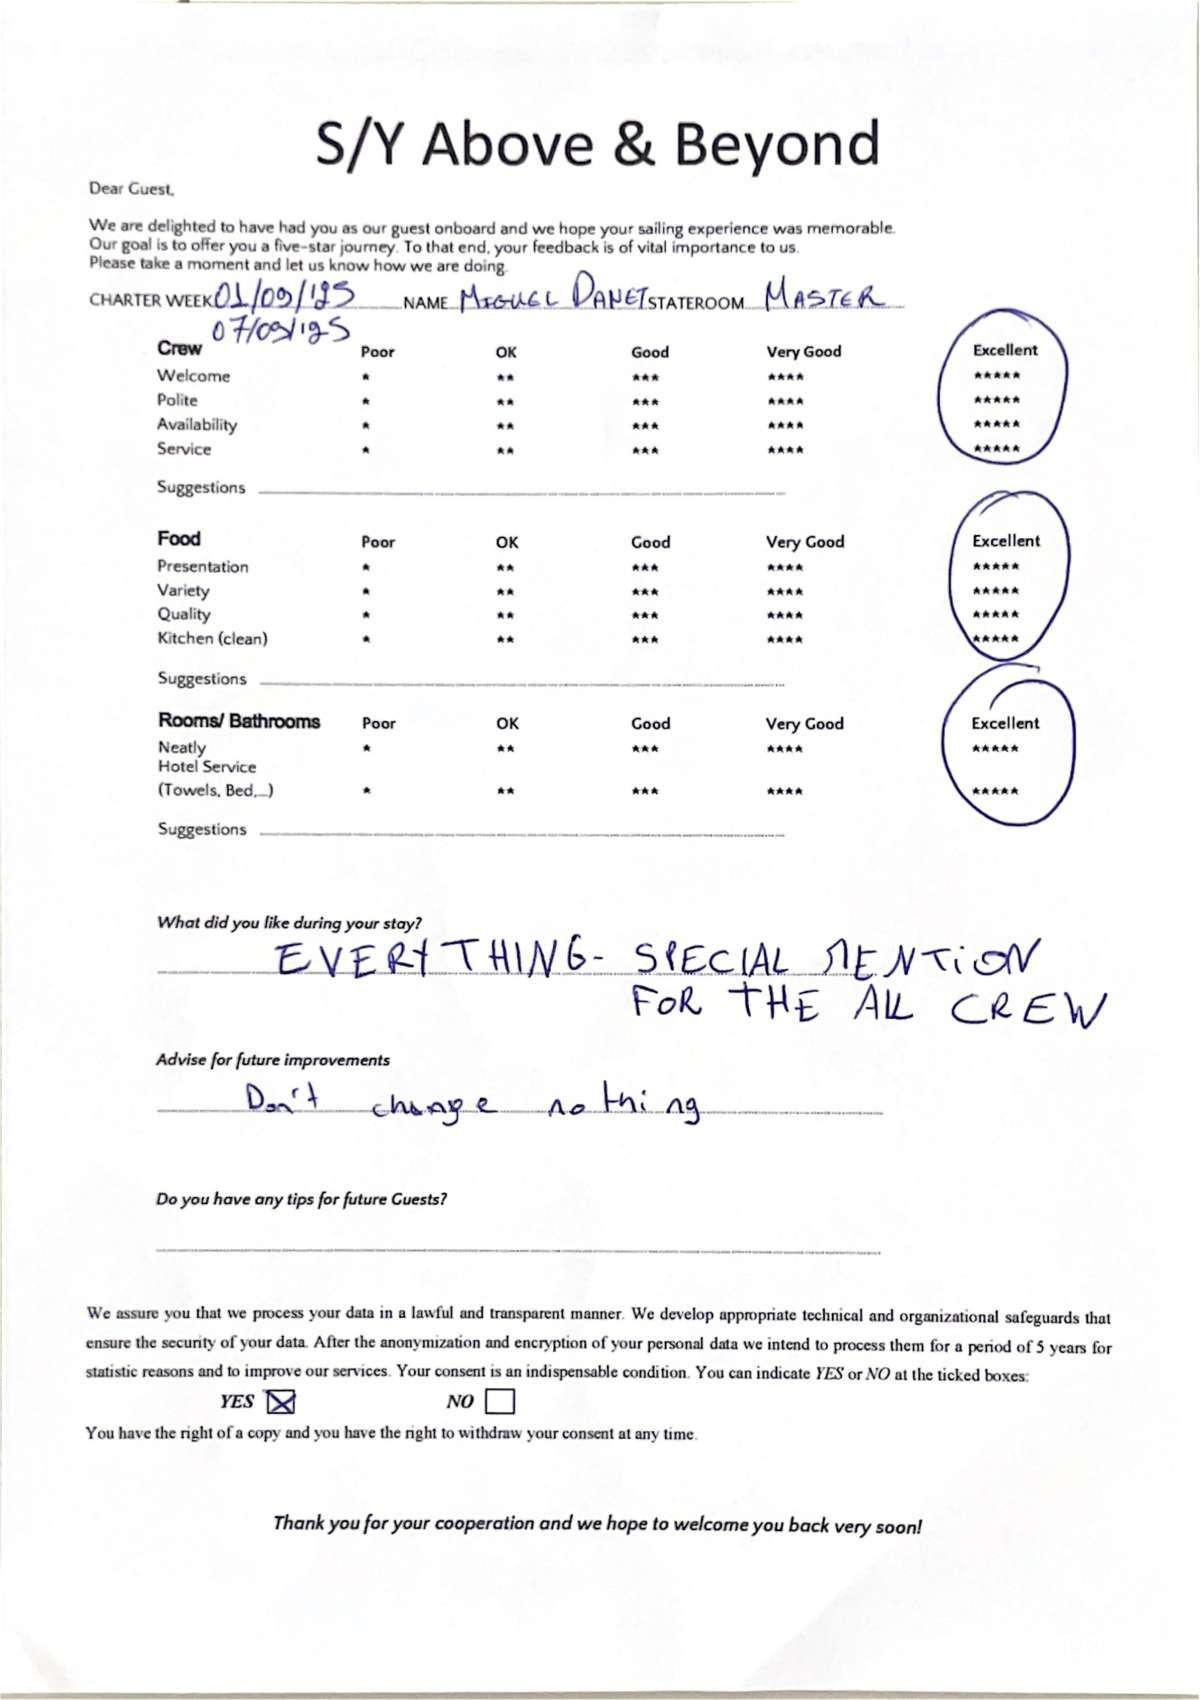 S/Y Above & Beyond
Dear Guest,
We are delighted to have had you as our guest onboard and we hope your sailing experience was memorable.
Our goal is to offer you a five-star journey. To that end, your feedback is of vital importance to us.
Please take a moment and let us know how we are doing.
CHARTER WEEK 01/09/'25 NAME MIGUEL DANET STATEROOM MASTER
07/09/'25
Crew Poor OK Good Very Good Excellent
Welcome * ** *** **** *****
Polite * ** *** **** *****
Availability * ** *** **** *****
Service * ** *** **** *****
Suggestions
Food Poor OK Good Very Good Excellent
Presentation * ** *** **** *****
Variety * ** *** **** *****
Quality * ** *** **** *****
Kitchen (clean) * ** *** **** *****
Suggestions
Rooms/ Bathrooms Poor OK Good Very Good Excellent
Neatly * ** *** **** *****
Hotel Service
(Towels, Bed,...) * ** *** **** *****
Suggestions
What did you like during your stay?
EVERYTHING - SPECIAL MENTION
FOR THE ALL CREW
Advise for future improvements
Don't change nothing
Do you have any tips for future Guests?
We assure you that we process your data in a lawful and transparent manner. We develop appropriate technical and organizational safeguards that
ensure the security of your data. After the anonymization and encryption of your personal data we intend to process them for a period of 5 years for
statistic reasons and to improve our services. Your consent is an indispensable condition. You can indicate YES or NO at the ticked boxes:
YES NO
You have the right of a copy and you have the right to withdraw your consent at any time.
Thank you for your cooperation and we hope to welcome you back very soon!